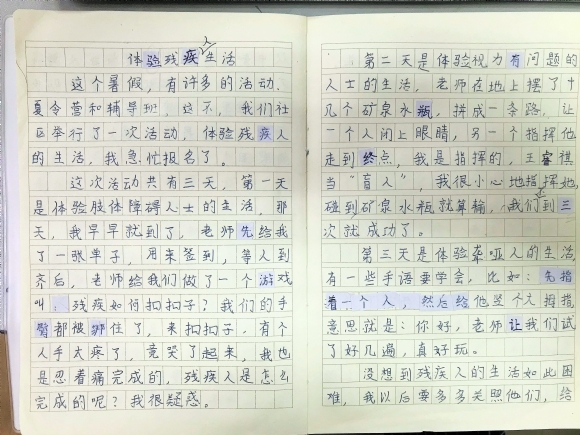 体验残疾人生活
这个暑假，有许多的活动，
夏令营和辅导班，这不，我们社
区举行了一次活动，体验残疾人
的生活，我急忙报名了。
这次活动共有三天，第一天
是体验肢体障碍人士的生活，那
天，我早早就到了，老师先给我
了一张单子，用来签到，等人到
齐后，老师给我们做了一个游戏
叫：残疾如何扣扣子？我们的手
臂都被绑住了，来扣扣子，有个
人手太疼了，竟哭了起来，我也
是忍着痛完成的，残疾人是怎么
完成的呢？我很疑惑。
第二天是体验视力有问题的
人士的生活，老师在地上摆了十
几个矿泉水瓶，拼成一条路，让
一个人闭上眼睛，另一个指挥他
走到终点，我是指挥的，王睿祺
当“盲人”，我很小心地指挥她，
碰到矿泉水瓶就算输，我们到三
次就成功了。
第三天是体验聋哑人的生活，
有一些手语要学会，比如：先指
着一个人，然后给他竖个大拇指
意思就是：你好，老师让我们试
了好几遍，真好玩。
没想到残疾人的生活如此困
难，我以后要多多关照他们，给